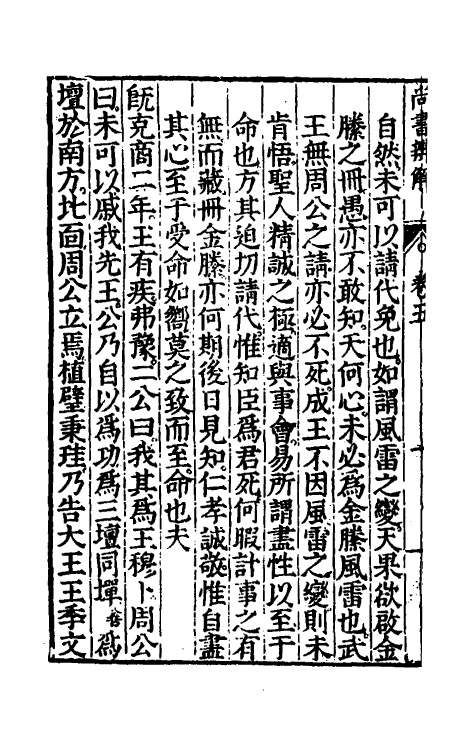 尚書辨解 卷五
自然未可以請代免也如謂風雷之變天果欲啟金
縢之冊愚亦不敢知天何心未必為金縢風雷也武
王無周公之請亦必不死成王不因風雷之變則未
肯悟聖人精誠之極適與事會易所謂盡性以至于
命也方其迫切請代惟知臣為君死何暇計事之有
無而藏冊金縢亦何期後日見知仁孝誠敬惟自盡
其心至于受命如嚮莫之致而至命也夫
旣克商二年王有疾弗豫二公曰我其為王穆卜周公
曰未可以戚我先王公乃自以為功為三壇同墠為
壇於南方北面周公立焉植璧秉珪乃告大王王季文